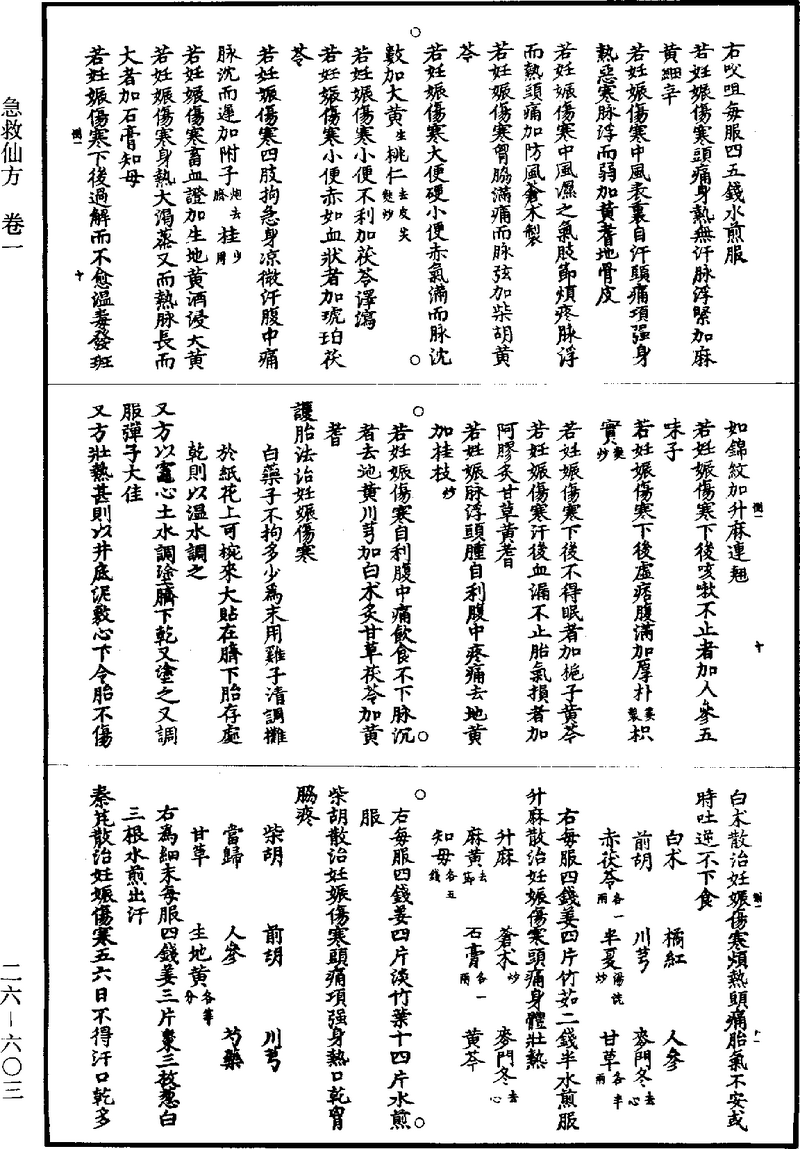 右㕮咀每服四五錢水煎服
若妊娠傷寒頭痛身熱無汗脉浮緊加麻
黄細辛
若妊娠傷寒中風表裏自汗頭痛項强身
熱惡寒脉浮而弱加黄耆地骨皮
若妊娠傷寒中風濕之氣肢節煩疼脉浮
而熱頭痛加防風蒼术製
若妊娠傷寒胷脇滿痛而脉弦加柴胡黄
芩
若妊娠傷寒大便硬小便赤氣滿而脉沈
數加大黄生桃仁去皮尖麩炒
若妊娠傷寒小便不利加茯苓澤瀉
若妊娠傷寒小便赤如血狀者加琥珀茯
苓
若妊娠傷寒四肢拘急身凉微汗腹中痛
脉沈而遲加附子炮去臍桂少用
若妊娠傷寒畜血證加生地黄酒浸大黄
若妊娠傷寒身熱大渴蒸又而熱脉長而
大者加石膏知母
若妊娠傷寒下後過解而不愈温毒發斑
如錦紋加升麻連翹
若妊娠傷寒下後咳嗽不止者加人參五
味子
若妊娠傷寒下後虚痞腹滿加厚朴姜製枳
實麩炒
若妊娠傷寒下後不得眠者加梔子黄芩
若妊娠傷寒汗後血漏不止胎氣損者加
阿膠炙甘草黄耆
若妊娠脉浮頭腫自利腹中疼痛去地黄
加桂枝炒
若妊娠傷寒自利腹中痛飲食不下脉沉
者去地黄川芎加白术炙甘草茯苓加黄
耆
護胎法治妊娠傷寒
白藥子不拘多少為末用雞子清調攤
於紙花上可椀來大貼在臍下胎存處
乾則以温水調之
又方以竈心土水調塗臍下乾又塗之又調
服彈子大佳
又方壯熱甚則以井底泥敷心下令胎不傷
白术散治妊娠傷寒煩熱頭痛胎氣不安或
時吐逆不下食
白术 橘紅 人參
前胡 川芎 麥門冬去心
赤茯苓各一兩 半夏湯洗炒 甘草各半兩
右每服四錢姜四片竹茹二錢半水煎服
升麻散治妊娠傷寒頭痛身體壯熱
升麻 蒼术炒 麥門冬去心
麻黄去節 石膏各一兩 黄芩
知母各五錢
右每服四錢姜四片淡竹葉十四片水煎
服
柴胡散治妊娠傷寒頭痛項强身熱口乾胷
脇疼
柴胡 前胡 川芎
當歸 人參 芍藥
甘草 生地黄各等分
右為細末每服四錢姜三片棗三枚葱白
三根水煎出汗
秦艽散治妊娠傷寒五六日不得汗口乾多
急救仙方 卷一
二六—六〇三